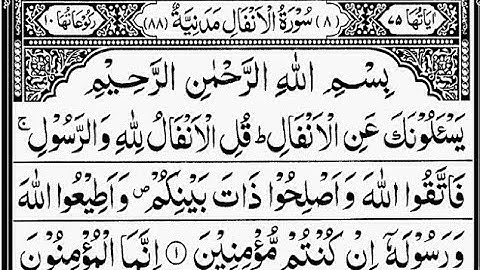 اٰيَاتُهَا ۷۵ (۸) سُوْرَةُ الْاَنْفَالِ مَدَنِيَّةٌ (۸۸) رُكُوْعَاتُهَا ۱۰
بِسْمِ اللّٰهِ الرَّحْمٰنِ الرَّحِيْمِ
يَسْـَٔلُوْنَكَ عَنِ الْاَنْفَالِ ؕ قُلِ الْاَنْفَالُ لِلّٰهِ وَالرَّسُوْلِ ۚ
فَاتَّقُوا اللّٰهَ وَاَصْلِحُوْا ذَاتَ بَيْنِكُمْ ۪ وَاَطِيْعُوا اللّٰهَ
وَرَسُوْلَهٗۤ اِنْ كُنْتُمْ مُّؤْمِنِيْنَ ﴿۱﴾ اِنَّمَا الْمُؤْمِنُوْنَ